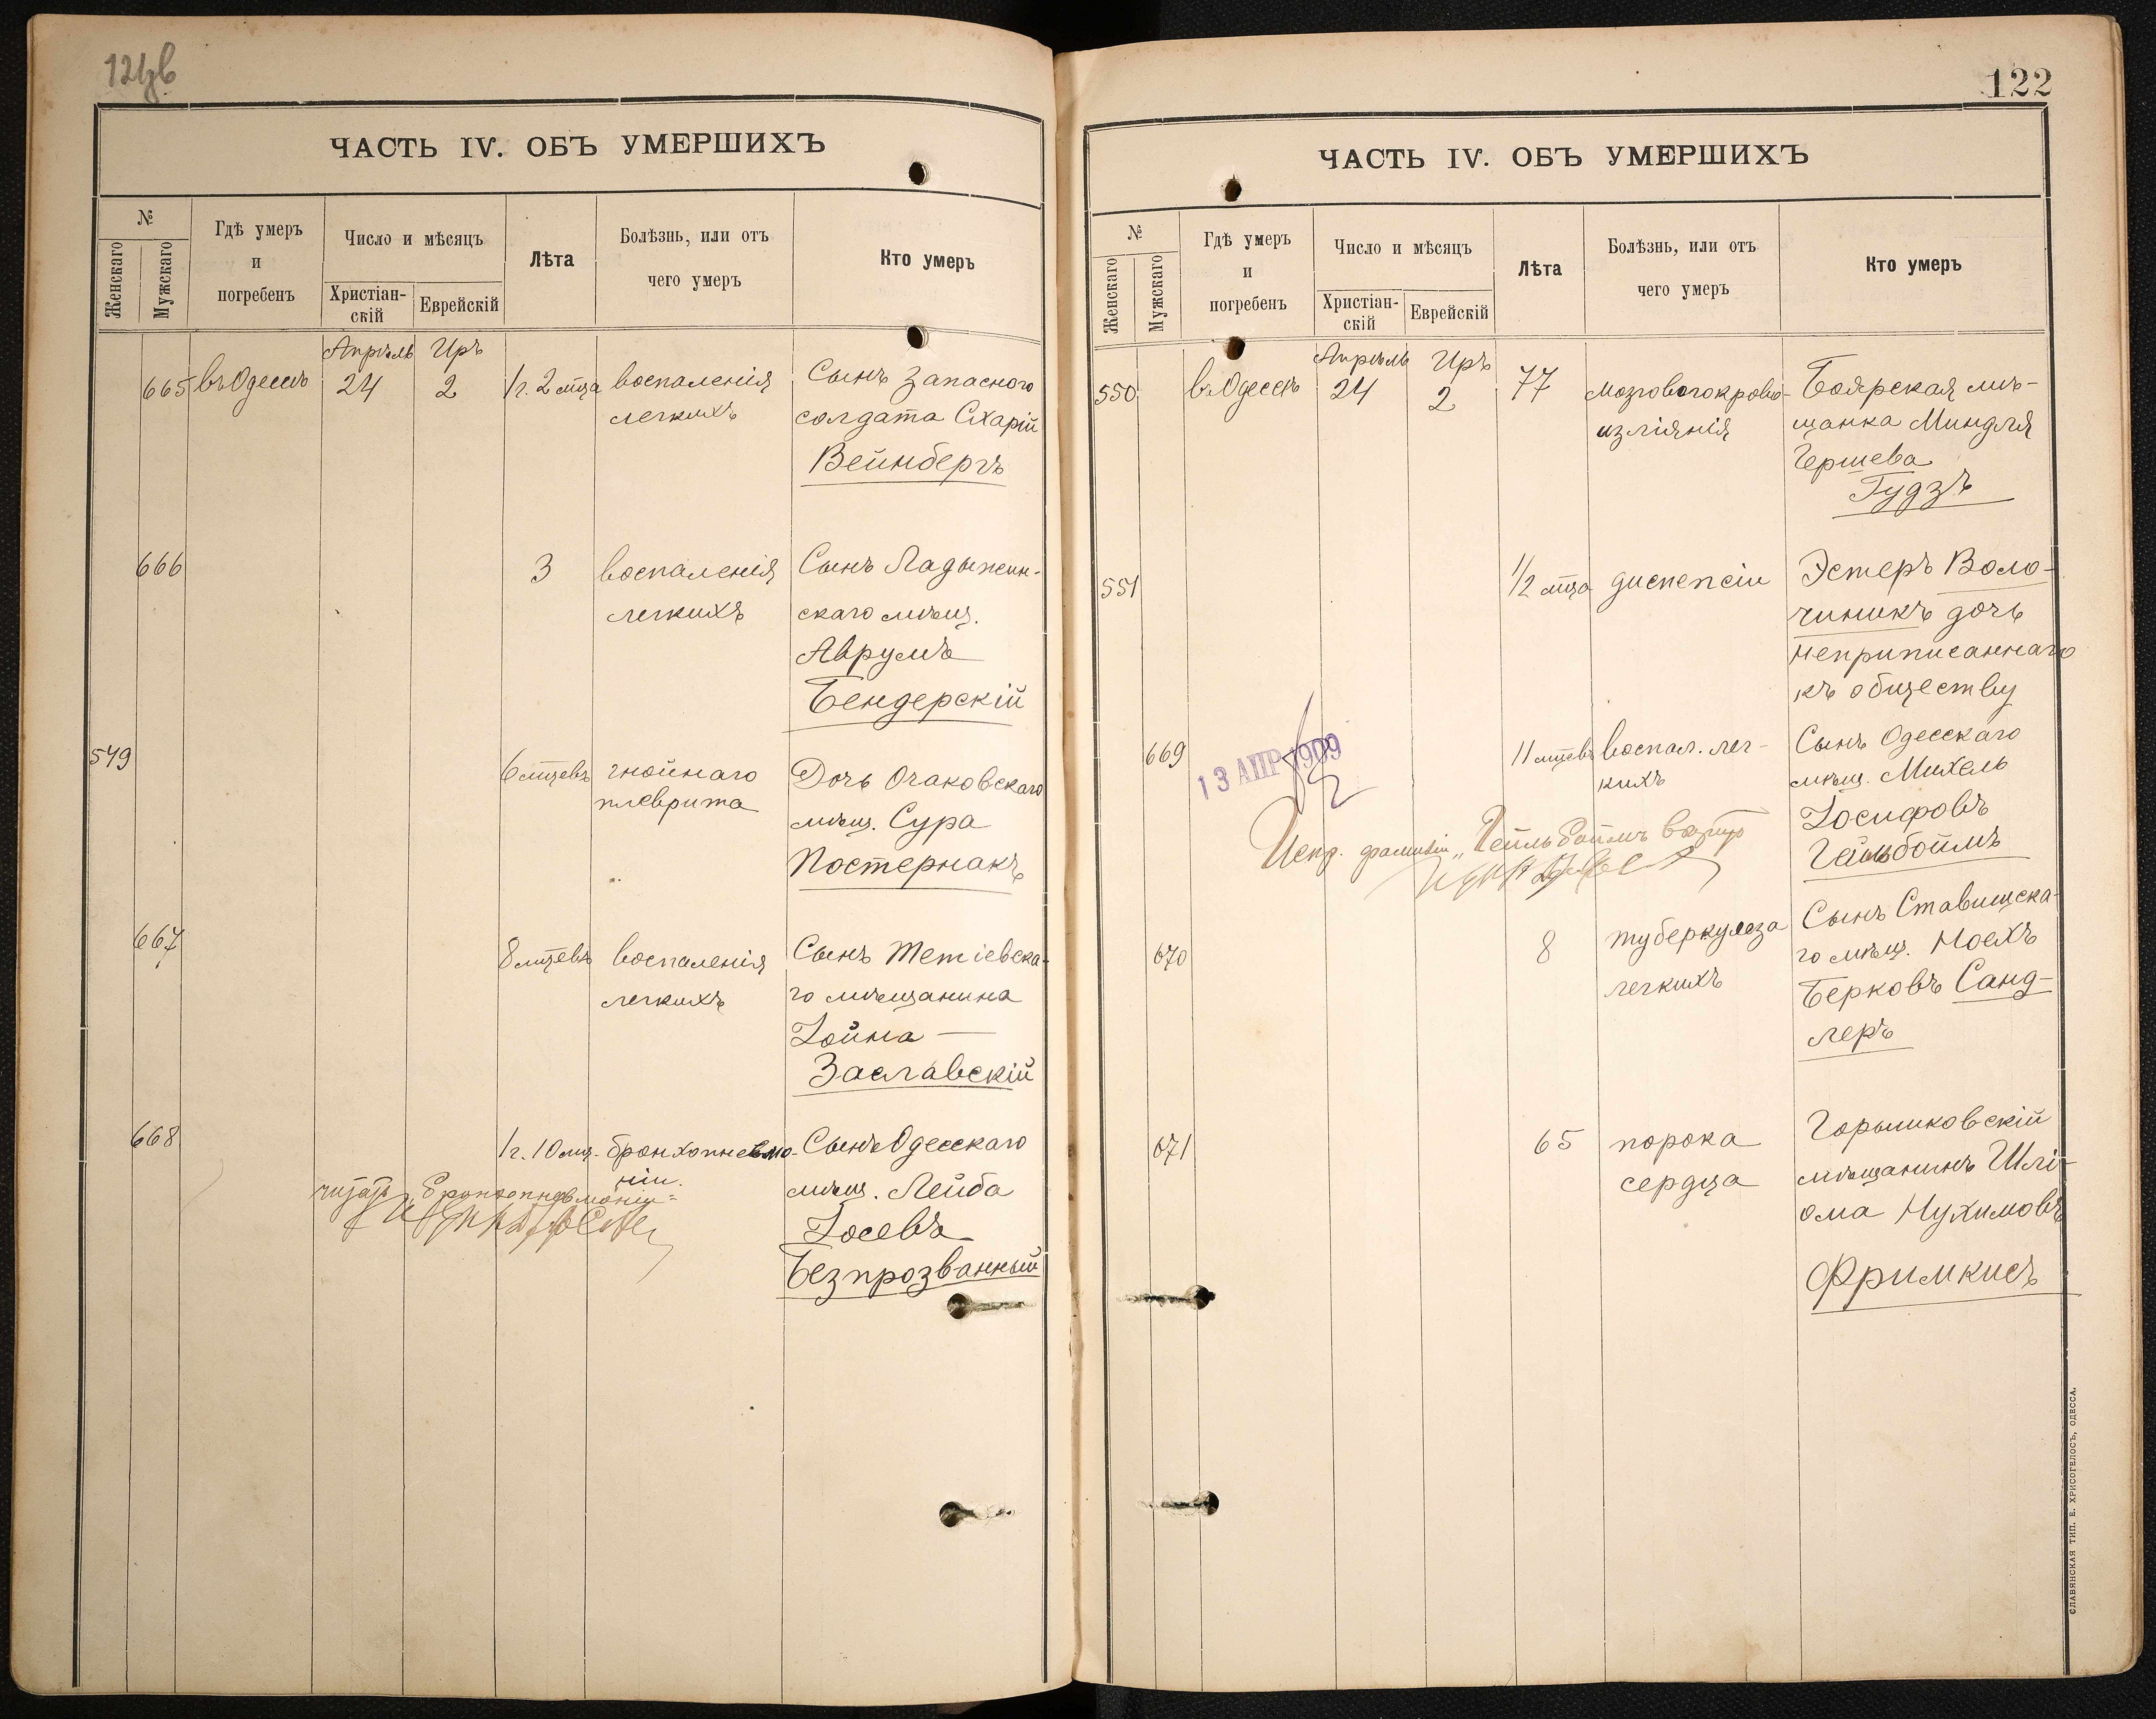 ЧАСТЬ IV. ОБЪ УМЕРШИХЪ
№
Женскаго
Мужскаго
Гдѣ умеръ
и
погребенъ
Число и мѣсяцъ
Христіан-
скій
Еврейскій
Лѣта
Болѣзнь, или отъ
чего умеръ
Кто умеръ
Апрѣль Иръ
665 въ Одессѣ 24 2 1 г. 2 мца воспаленія Сынъ запасного
легкихъ солдата Схарій
Вейнбергъ
666 3 воспаленія Сынъ Ладыжин-
легкихъ скаго мѣщ.
Аврумъ
Бендерскій
549 6 мцевъ гнойнаго Дочь Очаковскаго
плеврита мѣщ. Сура
Постернакъ
667 8 мцевъ воспаленія Сынъ Тетіевска-
легкихъ го мѣщанина
Іойна —
Заславскій
668 1 г. 10 мц. бронхопневмо- Сынъ Одесскаго
ніи. мѣщ. Лейба
читать „бронхопневмоніи"
Іосевъ
Безпрозванный
122
ЧАСТЬ IV. ОБЪ УМЕРШИХЪ
№
Женскаго
Мужскаго
Гдѣ умеръ
и
погребенъ
Число и мѣсяцъ
Христіан-
скій
Еврейскій
Лѣта
Болѣзнь, или отъ
чего умеръ
Кто умеръ
Апрѣль Иръ
550 въ Одессѣ 24 2 77 мозговогокрово- Боярская мѣ-
изліянія щанка Миндля
Гершева
Гудзъ
551 1/2 мца диспепсіи Эстеръ Воло-
чиникъ дочь
неприписаннаго
къ обществу
669 11 мцевъ воспал. лег- Сынъ Одесскаго
кихъ мѣщ. Михель
13 АПР 1909
Іосифовъ
Гейльбоймъ
Испр. фамиліи „Гейльбоймъ"
670 8 туберкулеза Сынъ Ставищска-
легкихъ го мѣщ. Моехъ
Берковъ Санд-
леръ
671 65 порока Горошковскій
сердца мѣщанинъ Шлі-
ома Нухимовъ
Фримкисъ
СЛАВЯНСКАЯ ТИП. Е. ХРИСОГЕЛОСЪ, ОДЕССА.